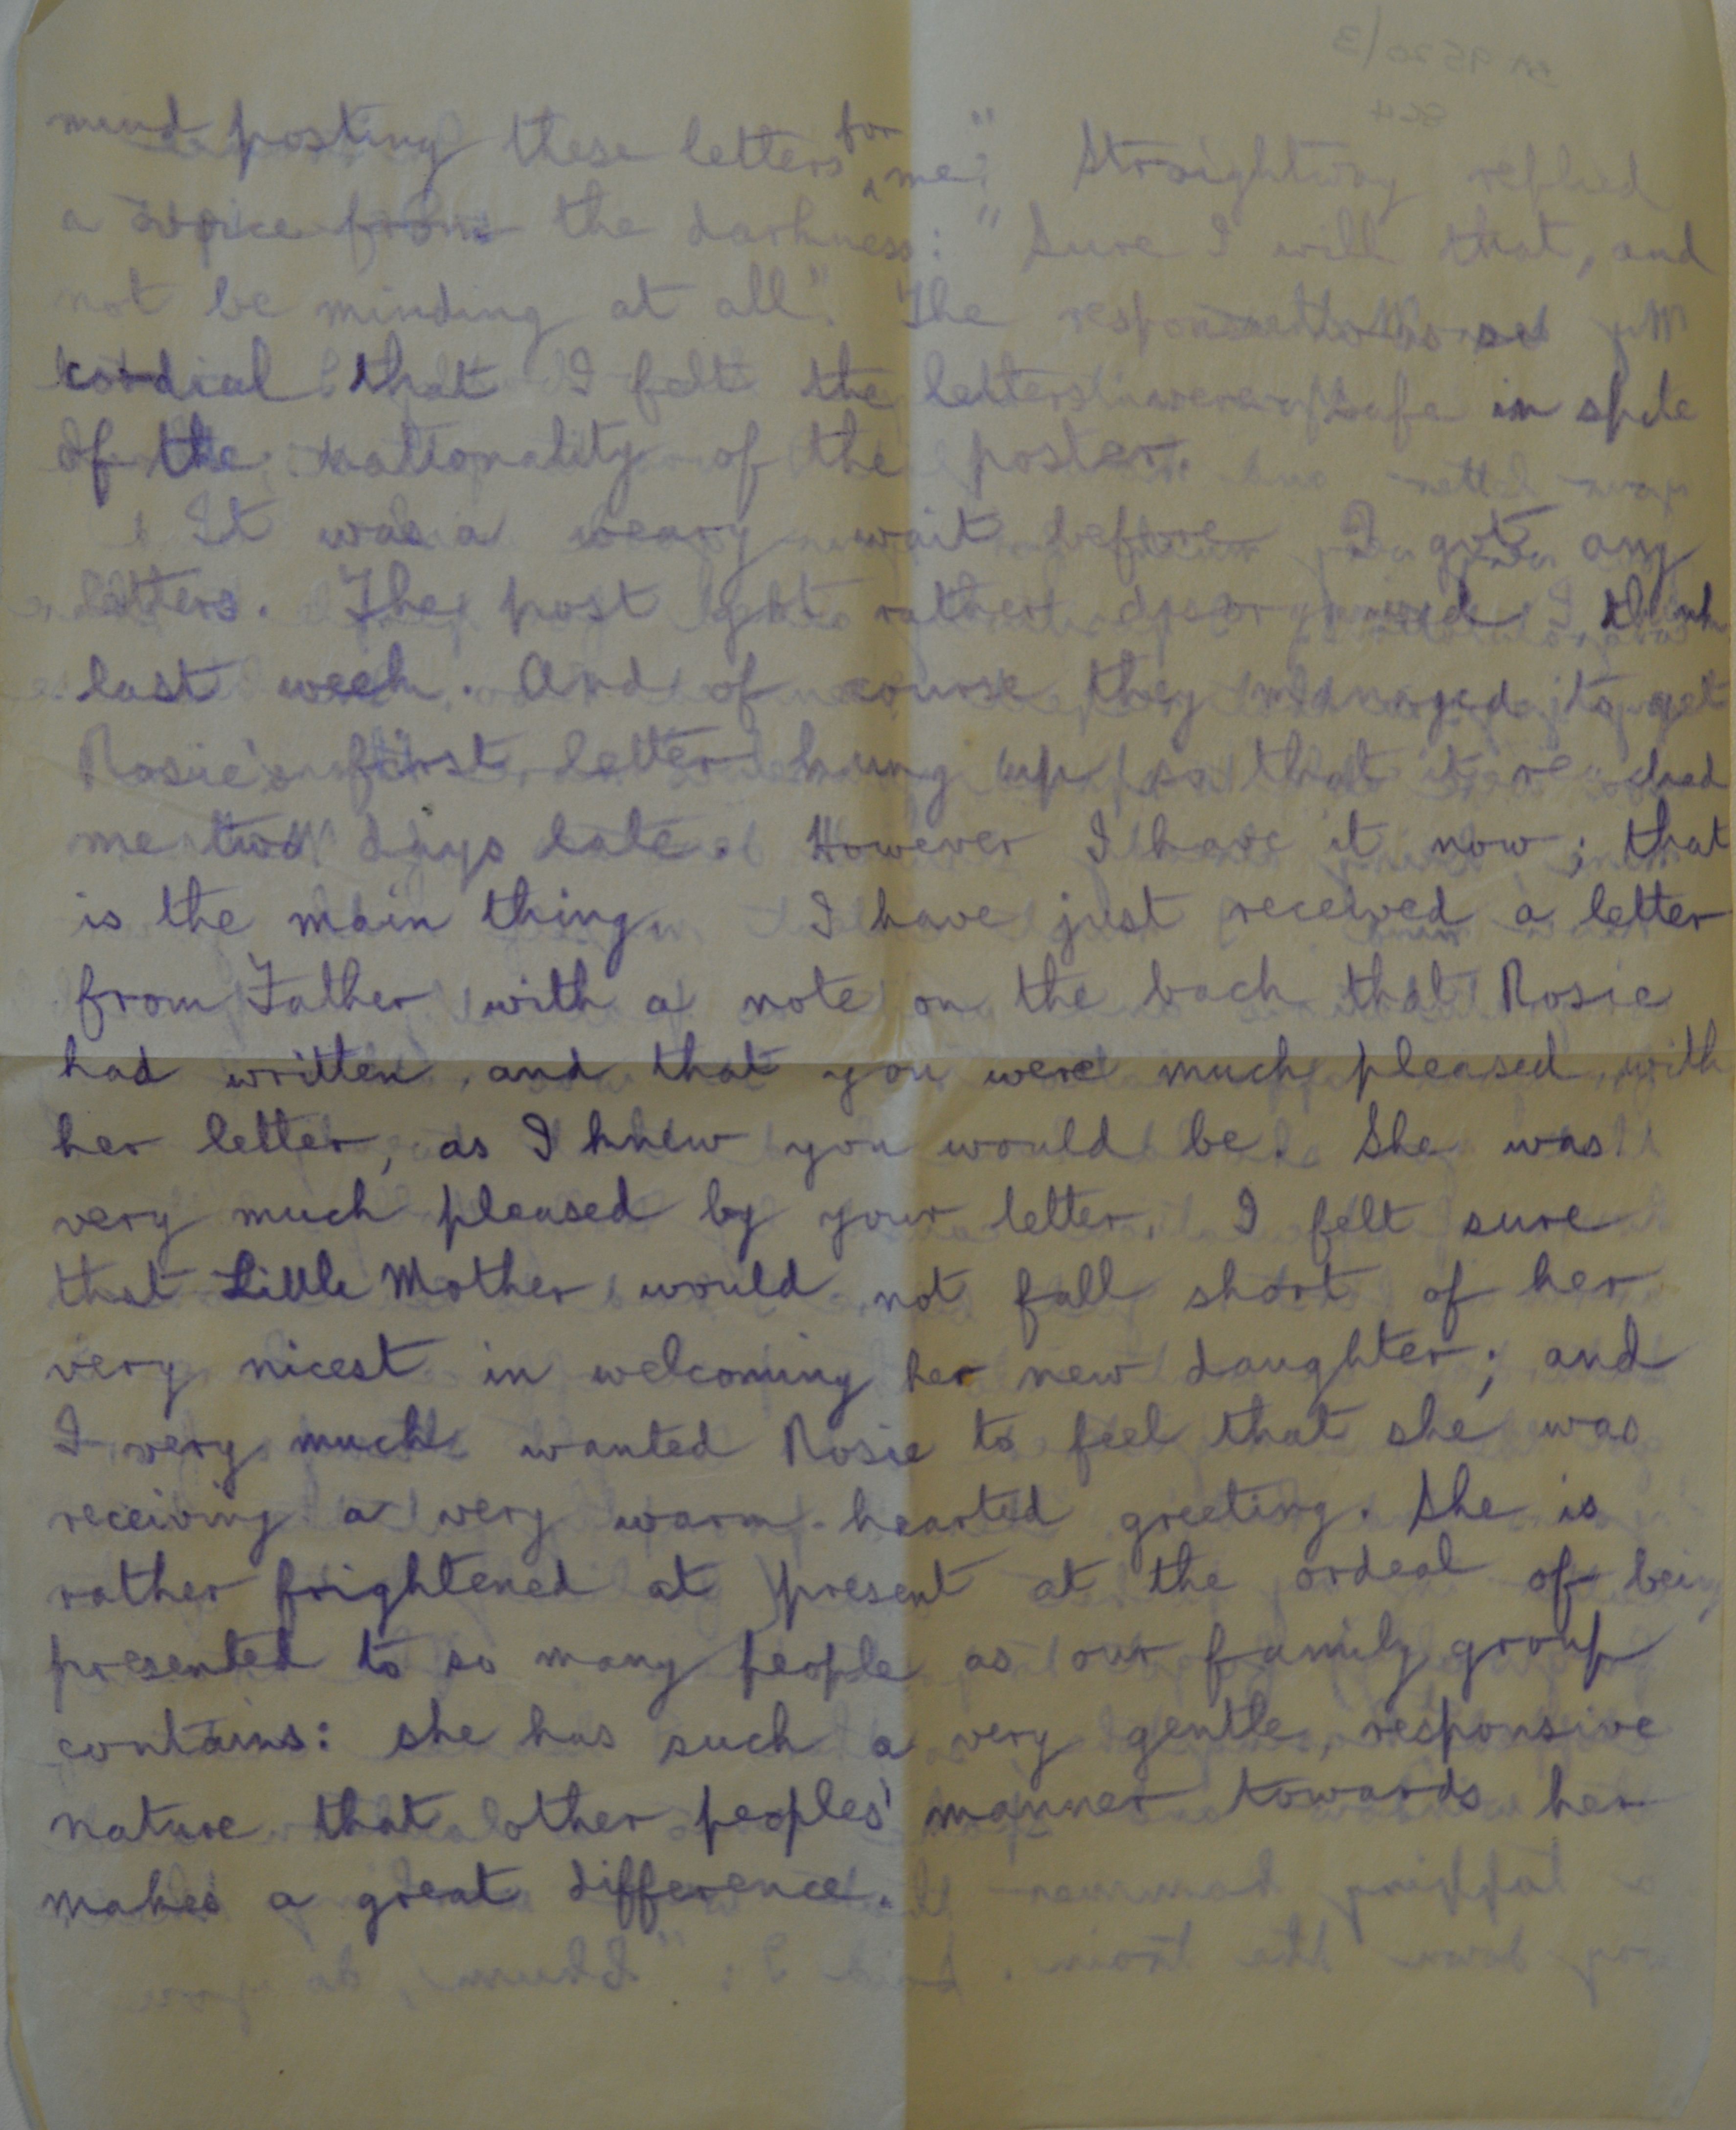 mind posting these letters for me?" Straightway replied
a voice from the darkness: "Sure I will that, and
not be minding at all". The response was so
cordial that I felt the letters were safe in spite
of the nationality of the poster.
It was a weary wait before I got any
letters. The post got rather disorganised I think
last week. And of course they managed to get
Rosie's first letter hung up so that it reached
me two days late. However I have it now; that
is the main thing. I have just received a letter
from Father with a note on the back that Rosie
had written and that you were much pleased with
her letter, as I knew you would be. She was
very much pleased by your letter. I felt sure
that Little Mother would not fall short of her
very nicest in welcoming her new daughter; and
I very much wanted Rosie to feel that she was
receiving a very warm-hearted greeting. She is
rather frightened at present at the ordeal of being
presented to so many people as our family group
contains: she has such a very gentle, responsive
nature that other peoples' manner towards her
makes a great difference.